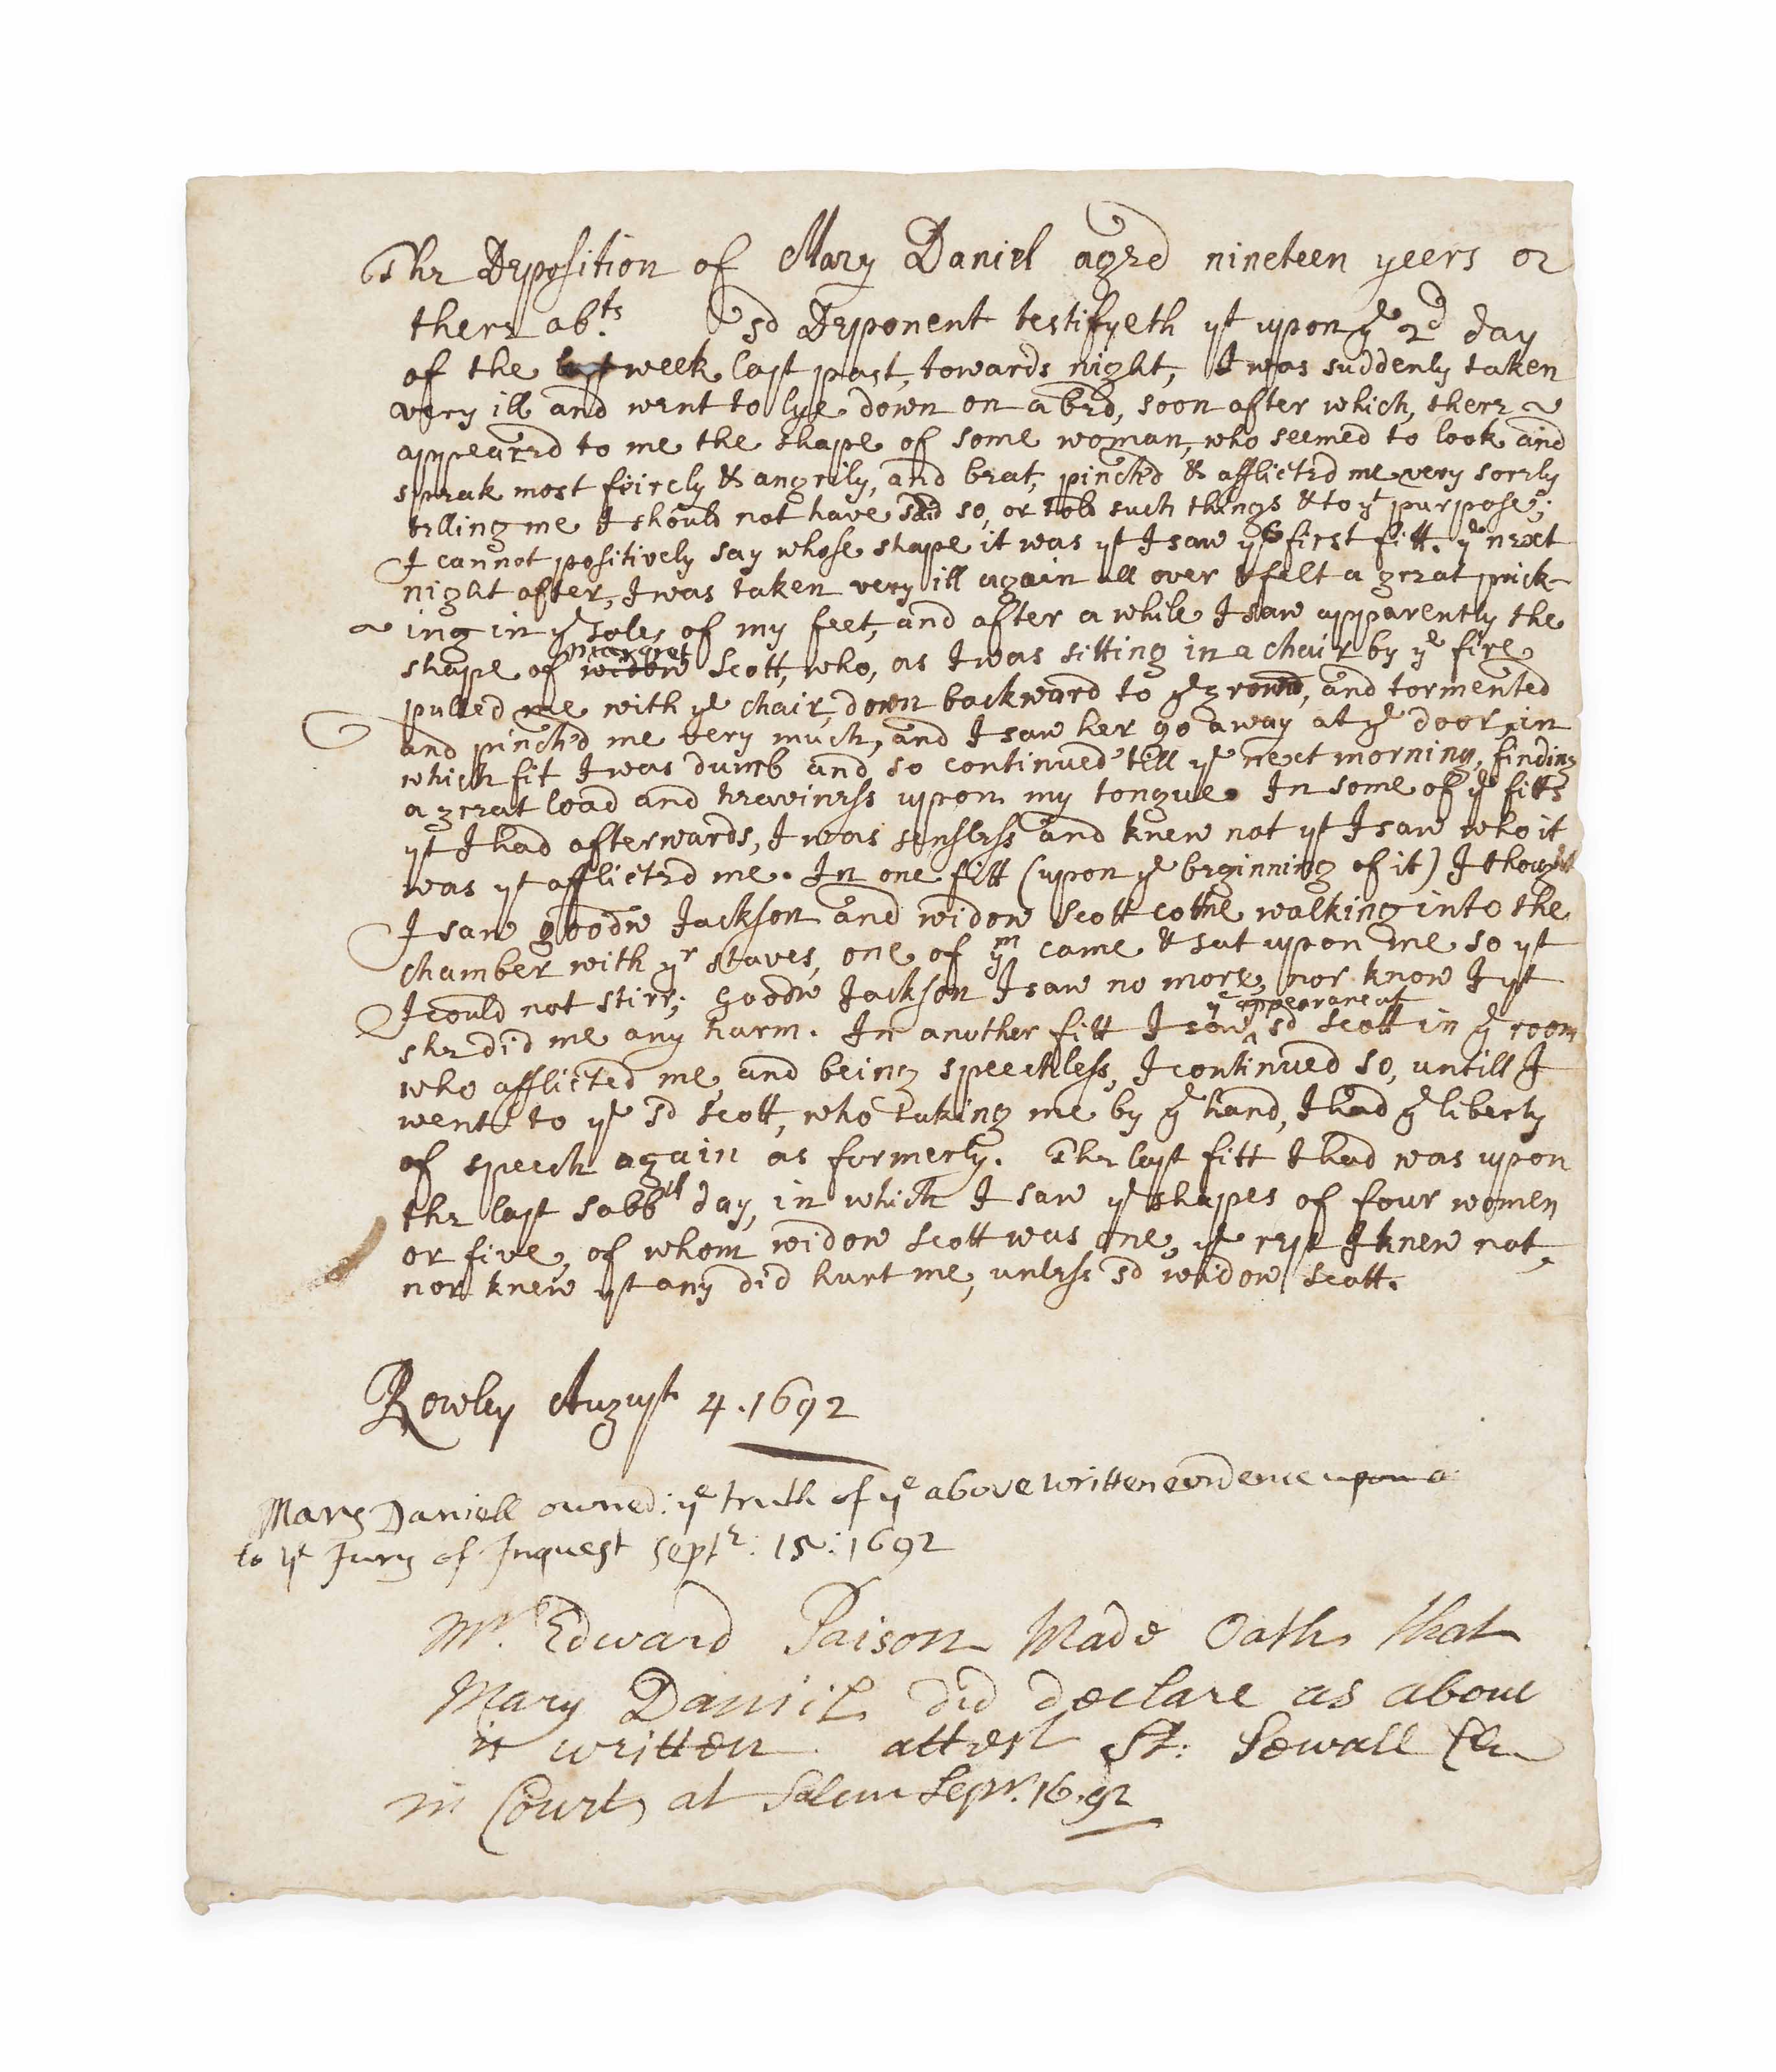 The Deposition of Mary Daniel aged nineteen yeers or
there abts. sd Deponent testifyeth yt upon ye 2d day
of the week last past, towards night, I was suddenly taken
very ill and went to lye down on a bed, soon after which, there
appeared to me the shape of some woman, who seemed to look and
speak most feircly & angrily, and beat, pinch'd & afflicted me very sorely
telling me I should not have said so, or told such things & to yt purpose;
I cannot positively say whose shape it was yt I saw ye first fitt. ye next
night after, I was taken very ill again all over & felt a great prick-
ing in ye soles of my feet, and after a while I saw apparently the
shape of widow margret Scott, who, as I was sitting in a chair by ye fire
pulled me with ye chair, down backward to ye ground, and tormented
and pinch'd me very much, and I saw her go away at ye door, in
which fit I was dumb and so continued till ye next morning, finding
a great load and heaviness upon my tongue. In some of ye fitts
yt I had afterwards, I was senseless and knew not yt I saw who it
was yt afflicted me. In one fitt (upon ye beginning of it) I thought
I saw goodw Jackson and widow Scott come walking into the
chamber with yr staves, one of ym came & sat upon me so yt
I could not stirr; Goodw Jackson I saw no more, nor know I yt
she did me any harm. In another fitt I saw ye appearance of sd Scott in ye room
who afflicted me, and being speechless, I continued so, untill I
went to ye sd Scott, who taking me by ye hand, I had ye liberty
of speech again as formerly. The last fitt I had was upon
the last Sabbth day, in which I saw ye shapes of four women
or five, of whom widow Scott was one, ye rest I knew not,
nor knew yt any did hurt me, unless sd widow Scott.
Rowley August 4. 1692
Mary Daniell owned: ye truth of ye above written evidence upon a
to ye Jury of Inquest Septr: 15: 1692
Mr. Edward Paison Made Oath that
Mary Daniil did declare as above
is written attest St: Sewall Cler
in Court at Salem Sepr. 16.92